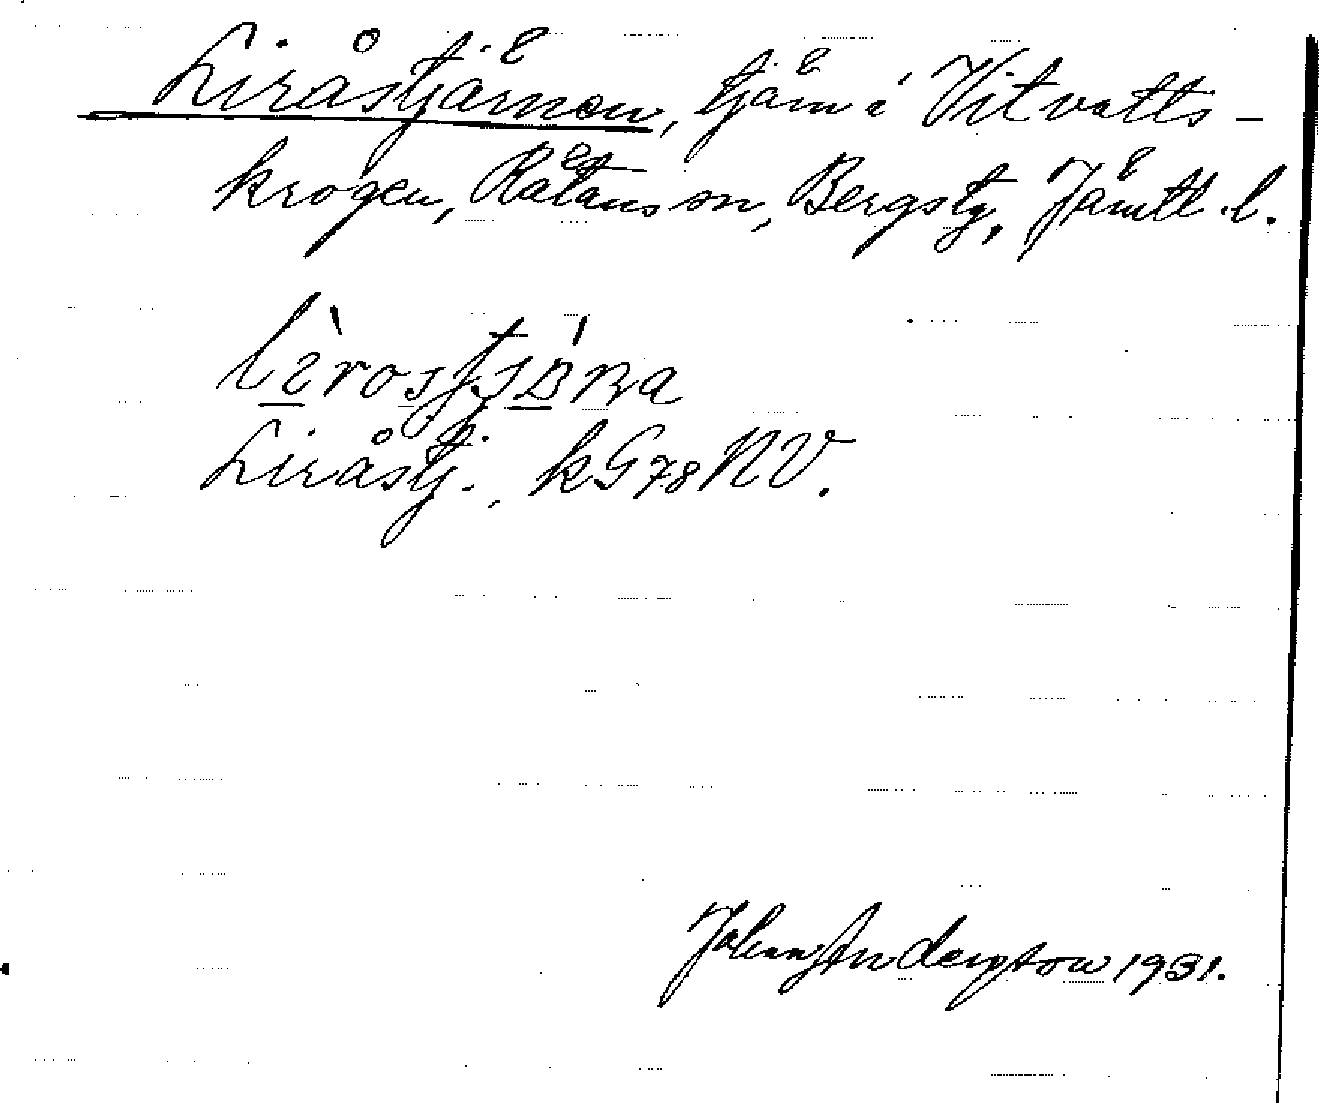 Liråstjärnen, tjärn i Vitvatts-
krogen, Rätans sn, Bergstg, Jämtl. l.
Liråstj., kG78NV.
Johan Anderston 1931.